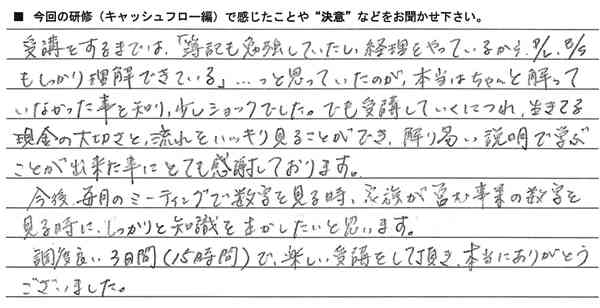 ■ 今回の研修（キャッシュフロー編）で感じたことや“決意”などをお聞かせ下さい。
受講をするまでは、「簿記も勉強していたし、経理をやっているから、P/L、B/S
もしっかり理解できている」…っと思っていたのが、本当はちゃんと解って
いなかった事を知り、少しショックでした。でも受講していくにつれ、生きてる
現金の大切さと、流れをハッキリ見ることができ、解り易い説明で学ぶ
ことが出来た事にとても感謝しております。
今後、毎月のミーティングで数字を見る時、家族が営む事業の数字を
見る時に、しっかりと知識を生かしたいと思います。
調度良い3日間（15時間）で、楽しい受講をして頂き、本当にありがとう
ございました。